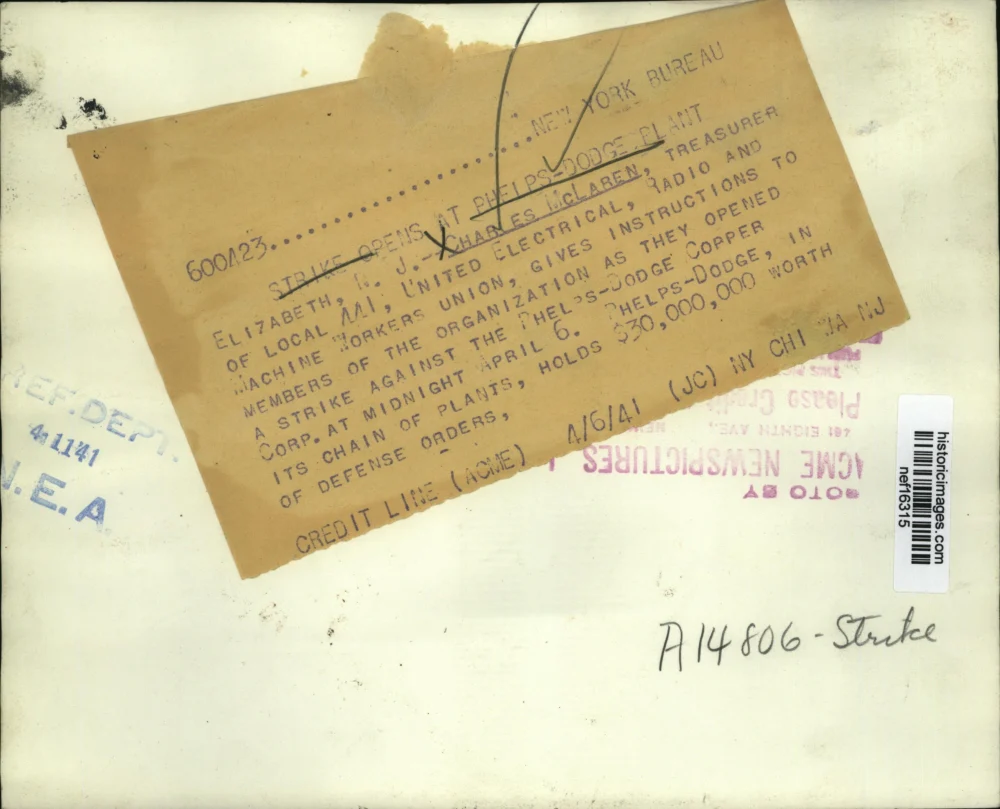 NEW YORK BUREAU
600423
STRIKE OPENS AT PHELPS-DODGE PLANT
ELIZABETH, N. J.--CHARLES McLAREN, TREASURER
OF LOCAL 441, UNITED ELECTRICAL, RADIO AND
MACHINE WORKERS UNION, GIVES INSTRUCTIONS TO
MEMBERS OF THE ORGANIZATION AS THEY OPENED
A STRIKE AGAINST THE PHELPS-DODGE COPPER
CORP. AT MIDNIGHT APRIL 6. PHELPS-DODGE, IN
ITS CHAIN OF PLANTS, HOLDS $30,000,000 WORTH
OF DEFENSE ORDERS,
CREDIT LINE (ACME) 4/6/41 (JC) NY CHI WA NJ
REF. DEPT.
4 11 41
N.E.A.
OTO BY
ACME NEWSPICTURES
461 EIGHTH AVE., NEW
Please Credit
historicimages.com
nef16315
A14806 - Strike